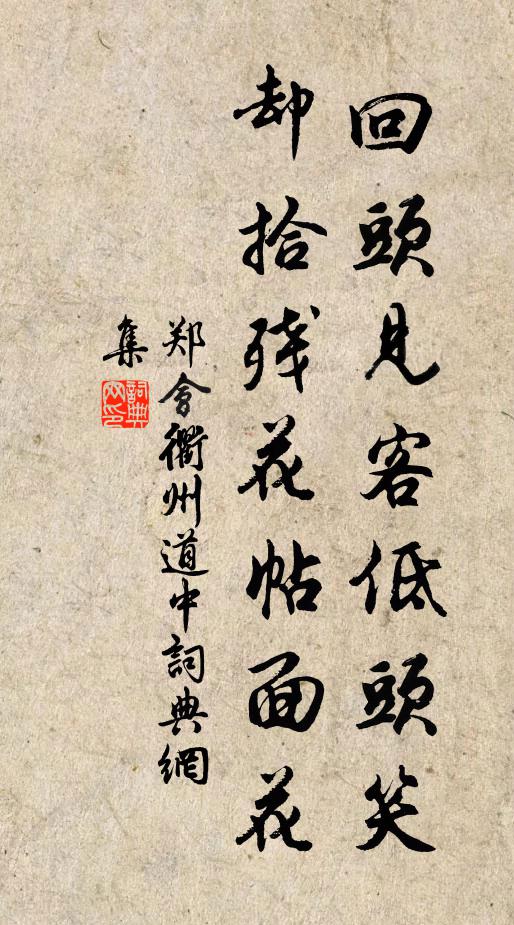 回頭見客低頭笑
却拾残花帖面花
郑會衢州道中詞典網
集
詞典
网印